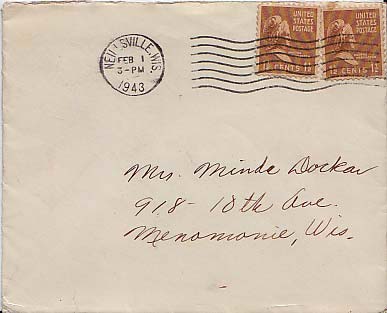 NEILLSVILLE, WIS.
FEB 1
3-PM
1943
UNITED STATES POSTAGE
1½ CENTS 1½
UNITED STATES POSTAGE
1½ CENTS 1½
Mrs. Minda Dockar
918-10th Ave.
Menomonie, Wis.